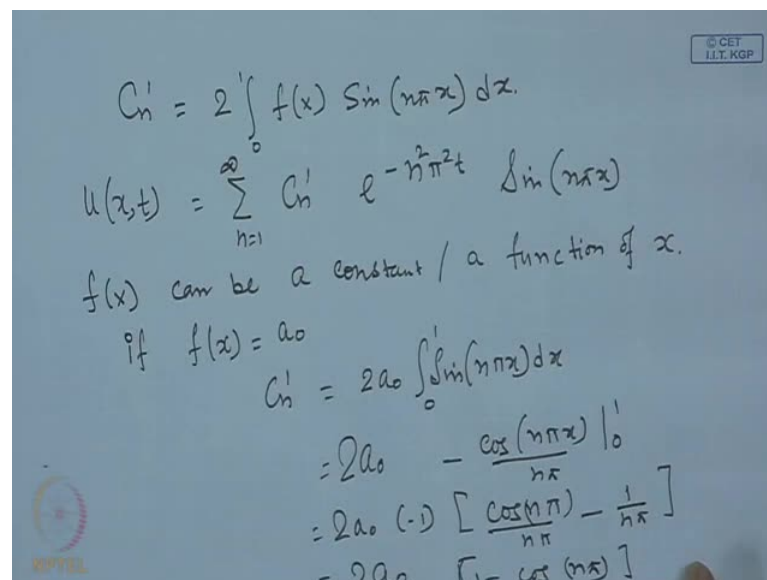 © CET
I.I.T. KGP
Cn' = 2 ∫₀¹ f(x) Sin (nπx) dx.
u(x,t) = ∑_{n=1}^{∞} Cn' e^{-n²π²t} Sin (nπx)
f(x) can be a constant / a function of x.
if f(x) = a₀
Cn' = 2a₀ ∫₀¹ Sin(nπx) dx
= 2a₀ - cos (nπx)/nπ |₀¹
= 2a₀ (-1) [ cos(nπ)/nπ - 1/nπ ]
= 2a₀ [1 - cos (nπ)]
NPTEL